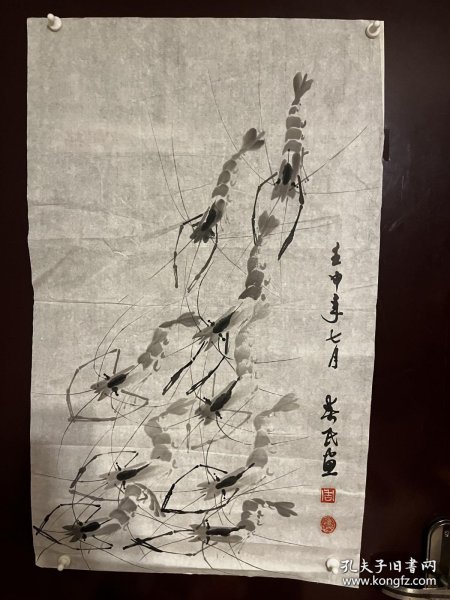 壬申年七月
春民画
周
孔夫子旧书网
www.kongfz.com